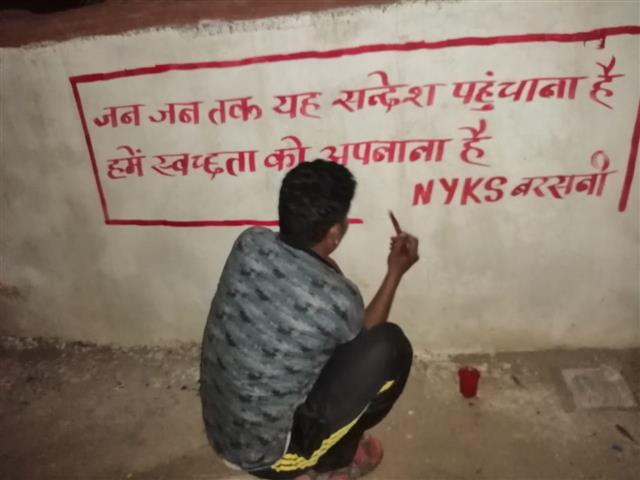 जन जन तक यह सन्देश पहुंचाना है
हमें स्वच्छता को अपनाना है
NYKS बरसनी